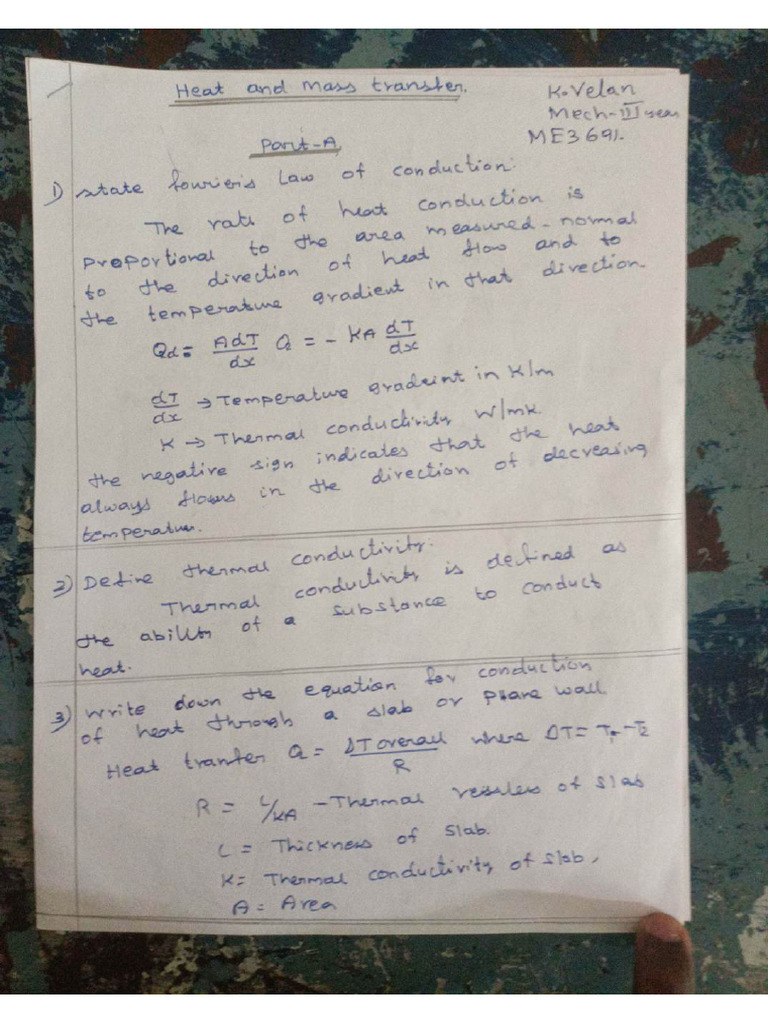 Heat and mass transfer.
K.Velan
Mech-III year
ME3691.
Part-A
1) state fourier's Law of conduction:
The rate of heat conduction is
proportional to the area measured - normal
to the direction of heat flow and to
the temperature gradient in that direction.
Qα = AdT/dx Q = - KA dT/dx
dT/dx → Temperature gradeint in K/m
K → Thermal conductivity W/mk.
the negative sign indicates that the heat
always flows in the direction of decreasing
temperature.
2) Define thermal conductivity:
Thermal conductivity is defined as
the ability of a substance to conduct
heat.
3) Write down the equation for conduction
of heat through a slab or plane wall
Heat tranfer Q = ΔT overall / R where ΔT = T1 - T2
R = L/KA - Thermal of slab
L = Thickness of slab.
K = Thermal conductivity of slab.
A = Area